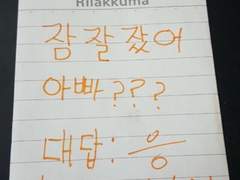 Rilakkuma
잠 잘 잤어
아빠???
대답: 응